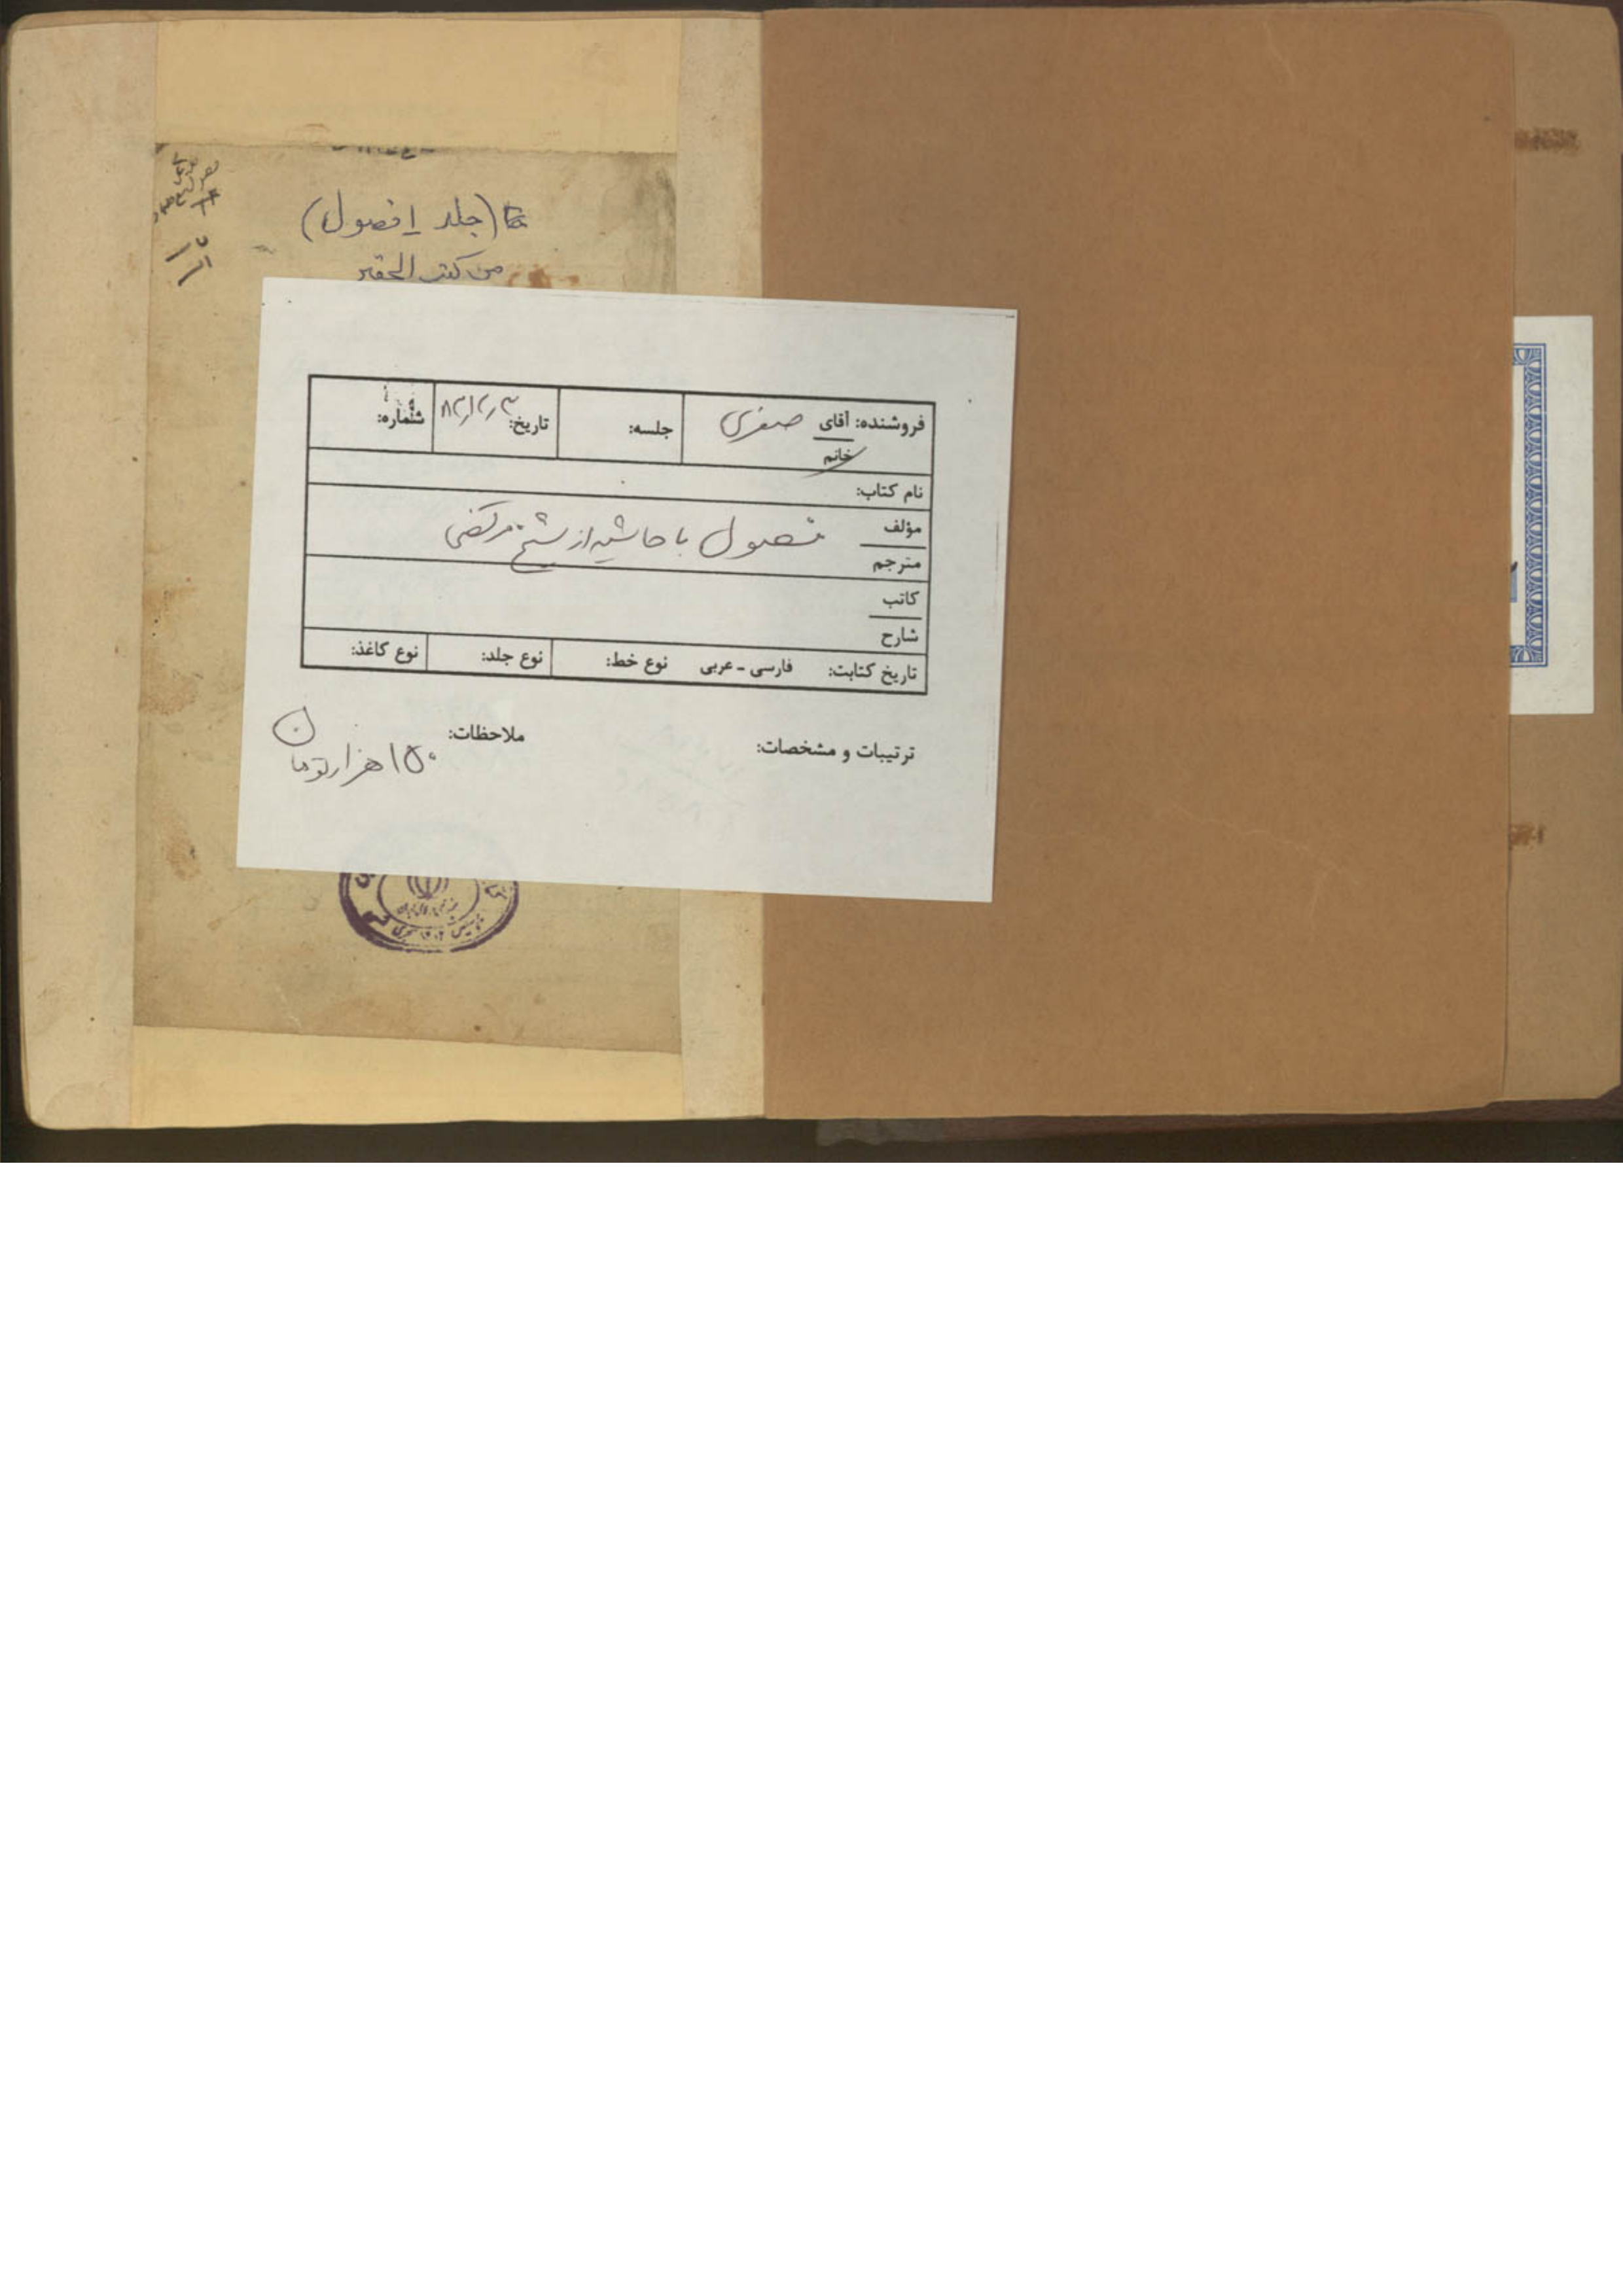 (جلد ۱ فصول)
من کتب الحقیر
فروشنده: آقای صفری جلسه: تاریخ: ۸۲/۲/۳ شماره:
خانم
نام کتاب:
مؤلف فصول با حاشیه از شیخ مرتضی
مترجم
کاتب
شارح
تاریخ کتابت: فارسی - عربی نوع خط: نوع جلد: نوع کاغذ:
ترتیبات و مشخصات: ملاحظات:
۱۵۰ هزار تومان